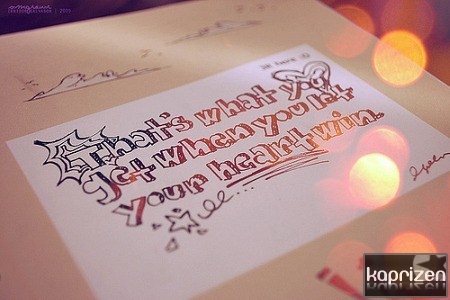 | 2010
That's what you
get when you let
your heart win.
kaprizen